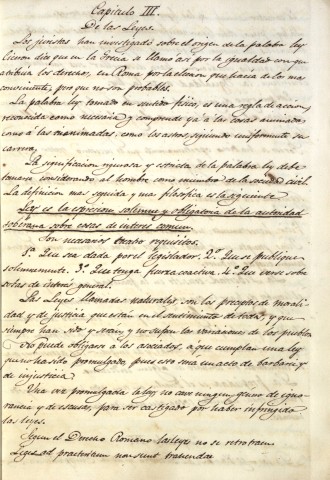 Capitulo III.
De las Leyes.
Los juristas han investigado sobre el origen de la palabra ley
Ciceron dice que en la Grecia se llamó asi por la igualdad con que
atribuia los derechos, en Roma por la eleccion que hacia de lo mas
conveniente, pero que no son probables.
La palabra ley tomada en sentido fisico, es una regla de accion
reconocida como necesaria y comprende ya á las cosas animadas
como á las inanimadas, como los astros, siguiendo uniformemente su
carrera.
La significacion rigurosa y estricta de la palabra ley debe
tomarse considerando al hombre como miembro de la sociedad civil.
La definicion mas seguida y mas filosofica es la siguiente
Ley es la espresion solemne y obligatoria de la autoridad
soberana sobre cosas de interes comun.
Son necesarios cuatro requisitos.
1º Que sea dada por el legislador. 2º Que se publique
solemnemente. 3º Que tenga fuerza coactiva. 4º Que verse sobre
cosas de interes general.
Las Leyes llamadas naturales, son los preceptos de morali
dad y de justicia que están en el sentimiento de todos, y que
siempre han sido y serán, y no sufren las variaciones de los pueblos
No puede obligarse á los asociados, á que cumplan una ley
que no ha sido promulgada, pues esto seria un acto de barbarie y
de injusticia
Una vez promulgada la ley, no cave ningun genero de igno-
rancia y de escusas, para ser castigado por haber infringido
las leyes.
Segun el Derecho Romano las leyes no se retrotraen
Leges ad praeteriam non sunt trahendae